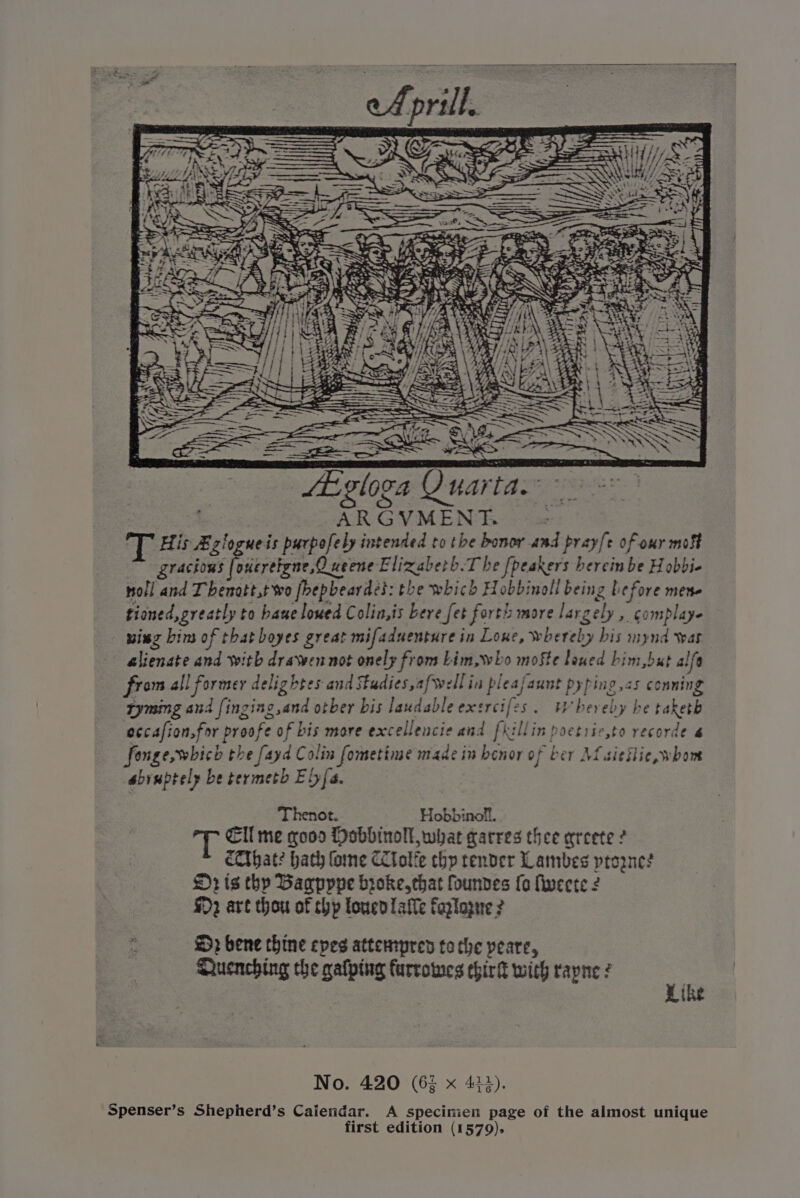 Aprill.
Ægloga Quarta.
ARGVMENT.
THis Æglogue is purposely intended to the honor and prayse of our most
gracious souereigne, Queene Elizabeth. The speakers herein be Hobbi-
noll and Thenott, two shepheardes: the which Hobbinoll being before men-
tioned, greatly to haue loued Colin, is here set forth more largely, complay-
ning him of that boyes great misaduenture in Loue, whereby his mynd was
alienate and with drawen not onely from him, who moste loued him, but also
from all former delightes and studies, aswell in pleasaunt pyping, as conning
ryming and singing, and other his laudable exercises. Whereby he taketh
occasion, for proofe of his more excellencie and skill in poetrie, to recorde a
songe, which the sayd Colin sometime made in honor of her Maiestie, whom
abruptely he termeth Elysa.
Thenot. Hobbinoll.
TEll me good Hobbinoll, what garres thee greete?
What? hath some Wolfe thy tender Lambes ytorne?
Or is thy Bagpype broke, that soundes so sweete?
Or art thou of thy loued lasse forlorne?
Or bene thine eyes attempred to the yeare,
Quenching the gasping furrowes thirst with rayne?
Like
No. 420 (6⅞ × 4¹¹⁄₁₆).
Spenser's Shepherd's Calendar. A specimen page of the almost unique
first edition (1579).